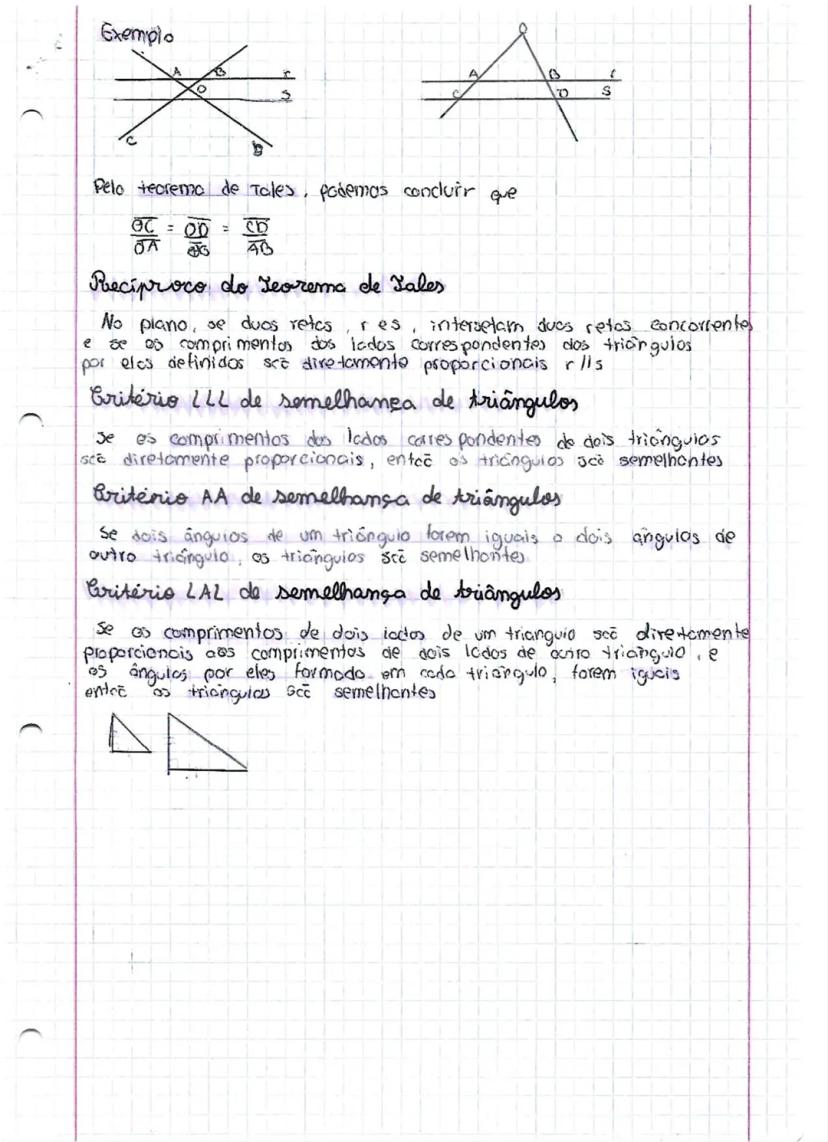 Exemplo
A B r
O
s
C D
O
A B r
C D s
Pelo teorema de Tales, podemos concluir que
OC = OD = CD
OA OB AB
Recíproco do Teorema de Tales
No plano, se duas retas, r e s, intersetam duas retas concorrentes
e se os comprimentos dos lados correspondentes dos triângulos
por eles definidos são diretamente proporcionais r//s
Critério LLL de semelhança de triângulos
Se os comprimentos dos lados correspondentes de dois triângulos
são diretamente proporcionais, então os triângulos são semelhantes
Critério AA de semelhança de triângulos
Se dois ângulos de um triângulo forem iguais a dois ângulos de
outro triângulo, os triângulos são semelhantes
Critério LAL de semelhança de triângulos
Se os comprimentos de dois lados de um triangulo são diretamente
proporcionais aos comprimentos de dois lados de outro triângulo, e
os ângulos por eles formado em cada triângulo, forem iguais
então os triângulos são semelhantes